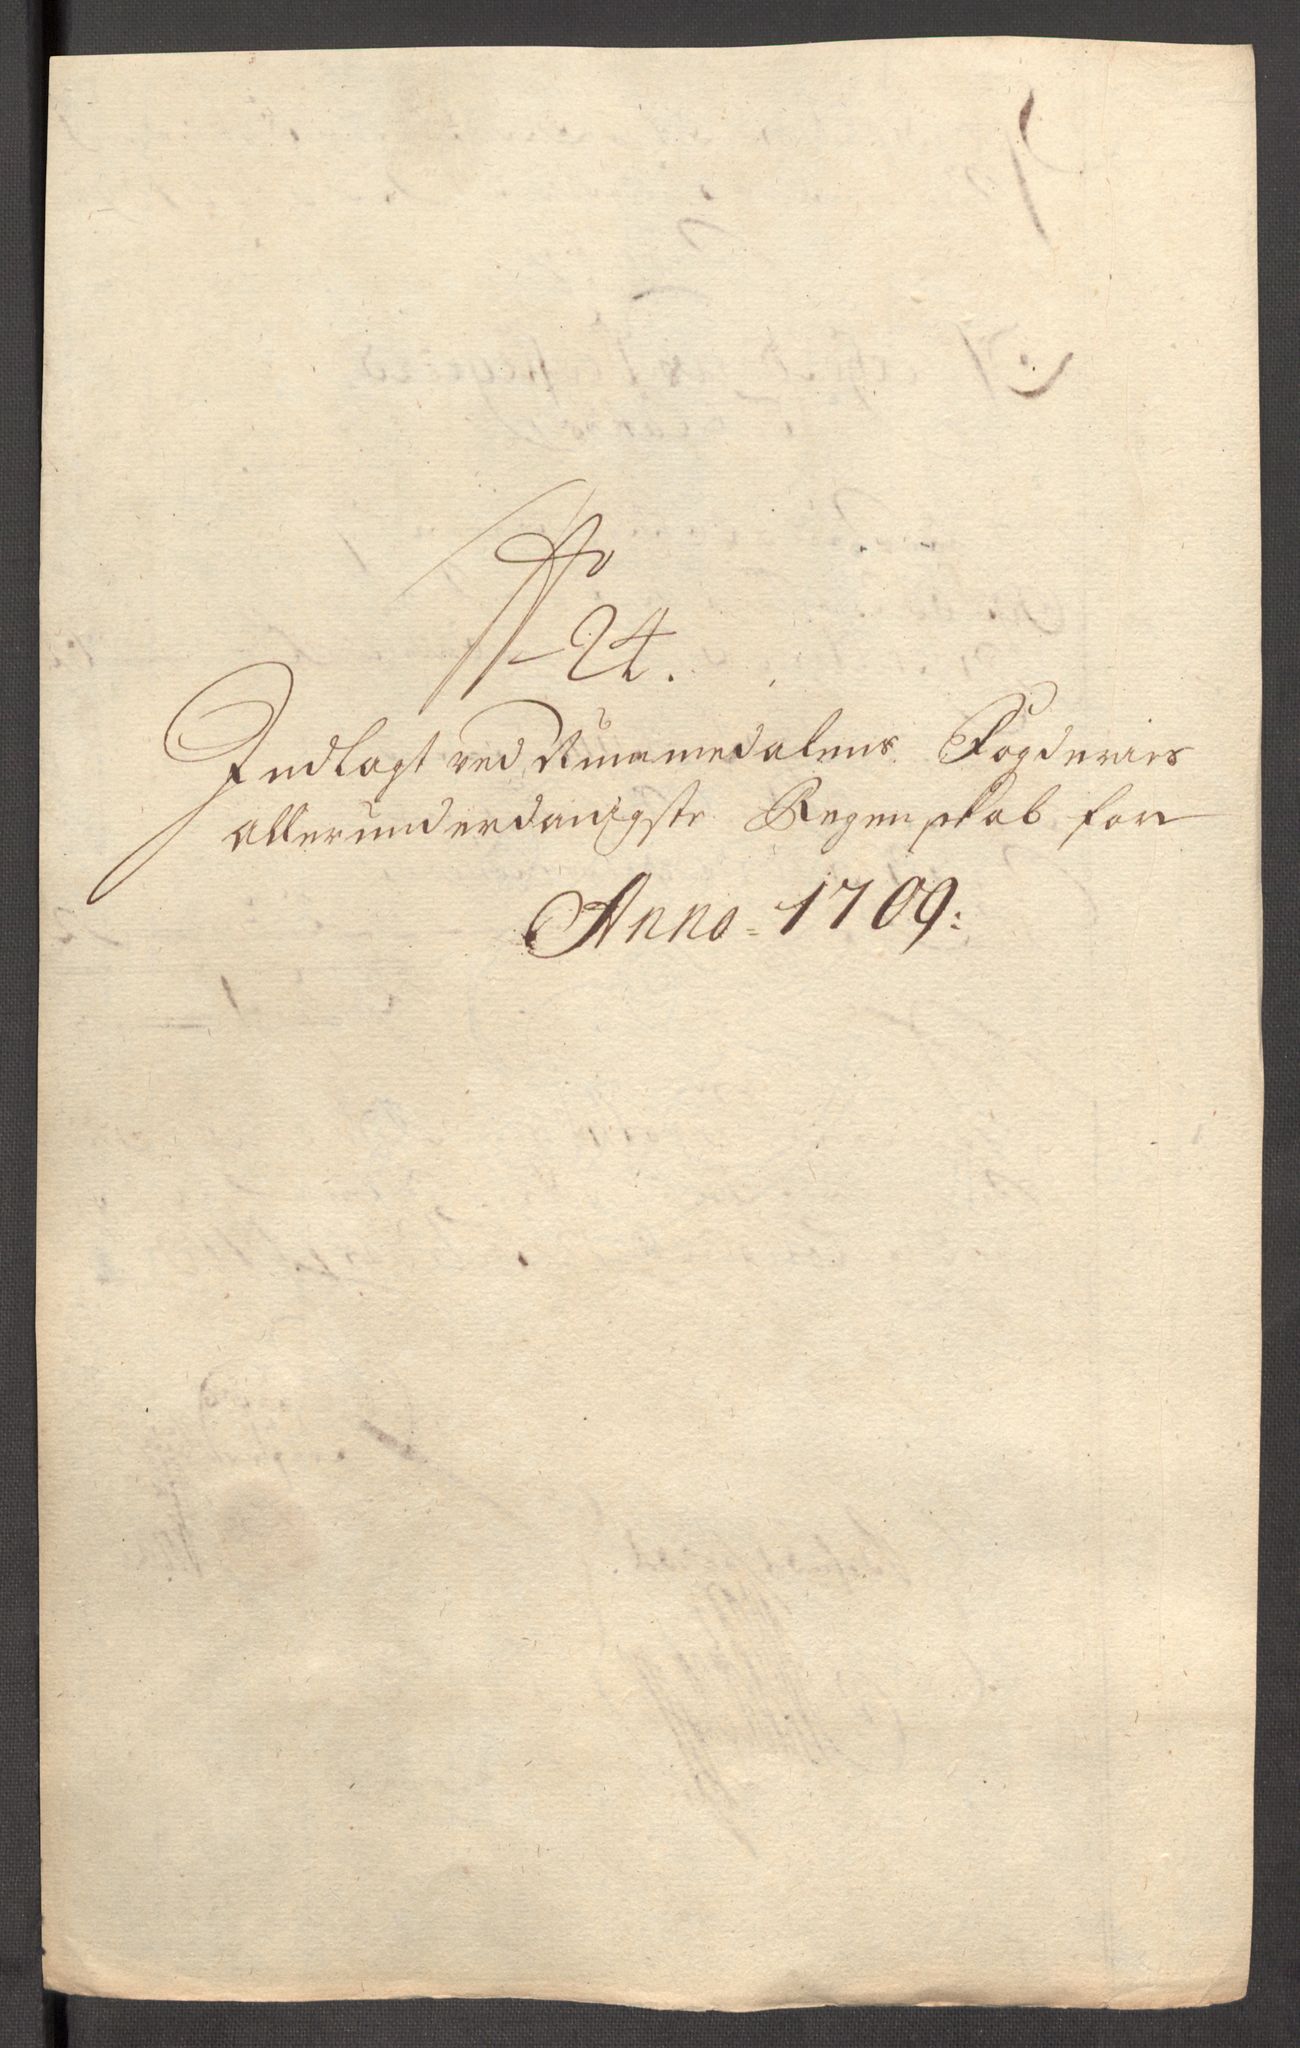 No
24.
Indlagt ved Nummedalens Fogderies
allerunderdanigste Regenskab for
Anno 1709: